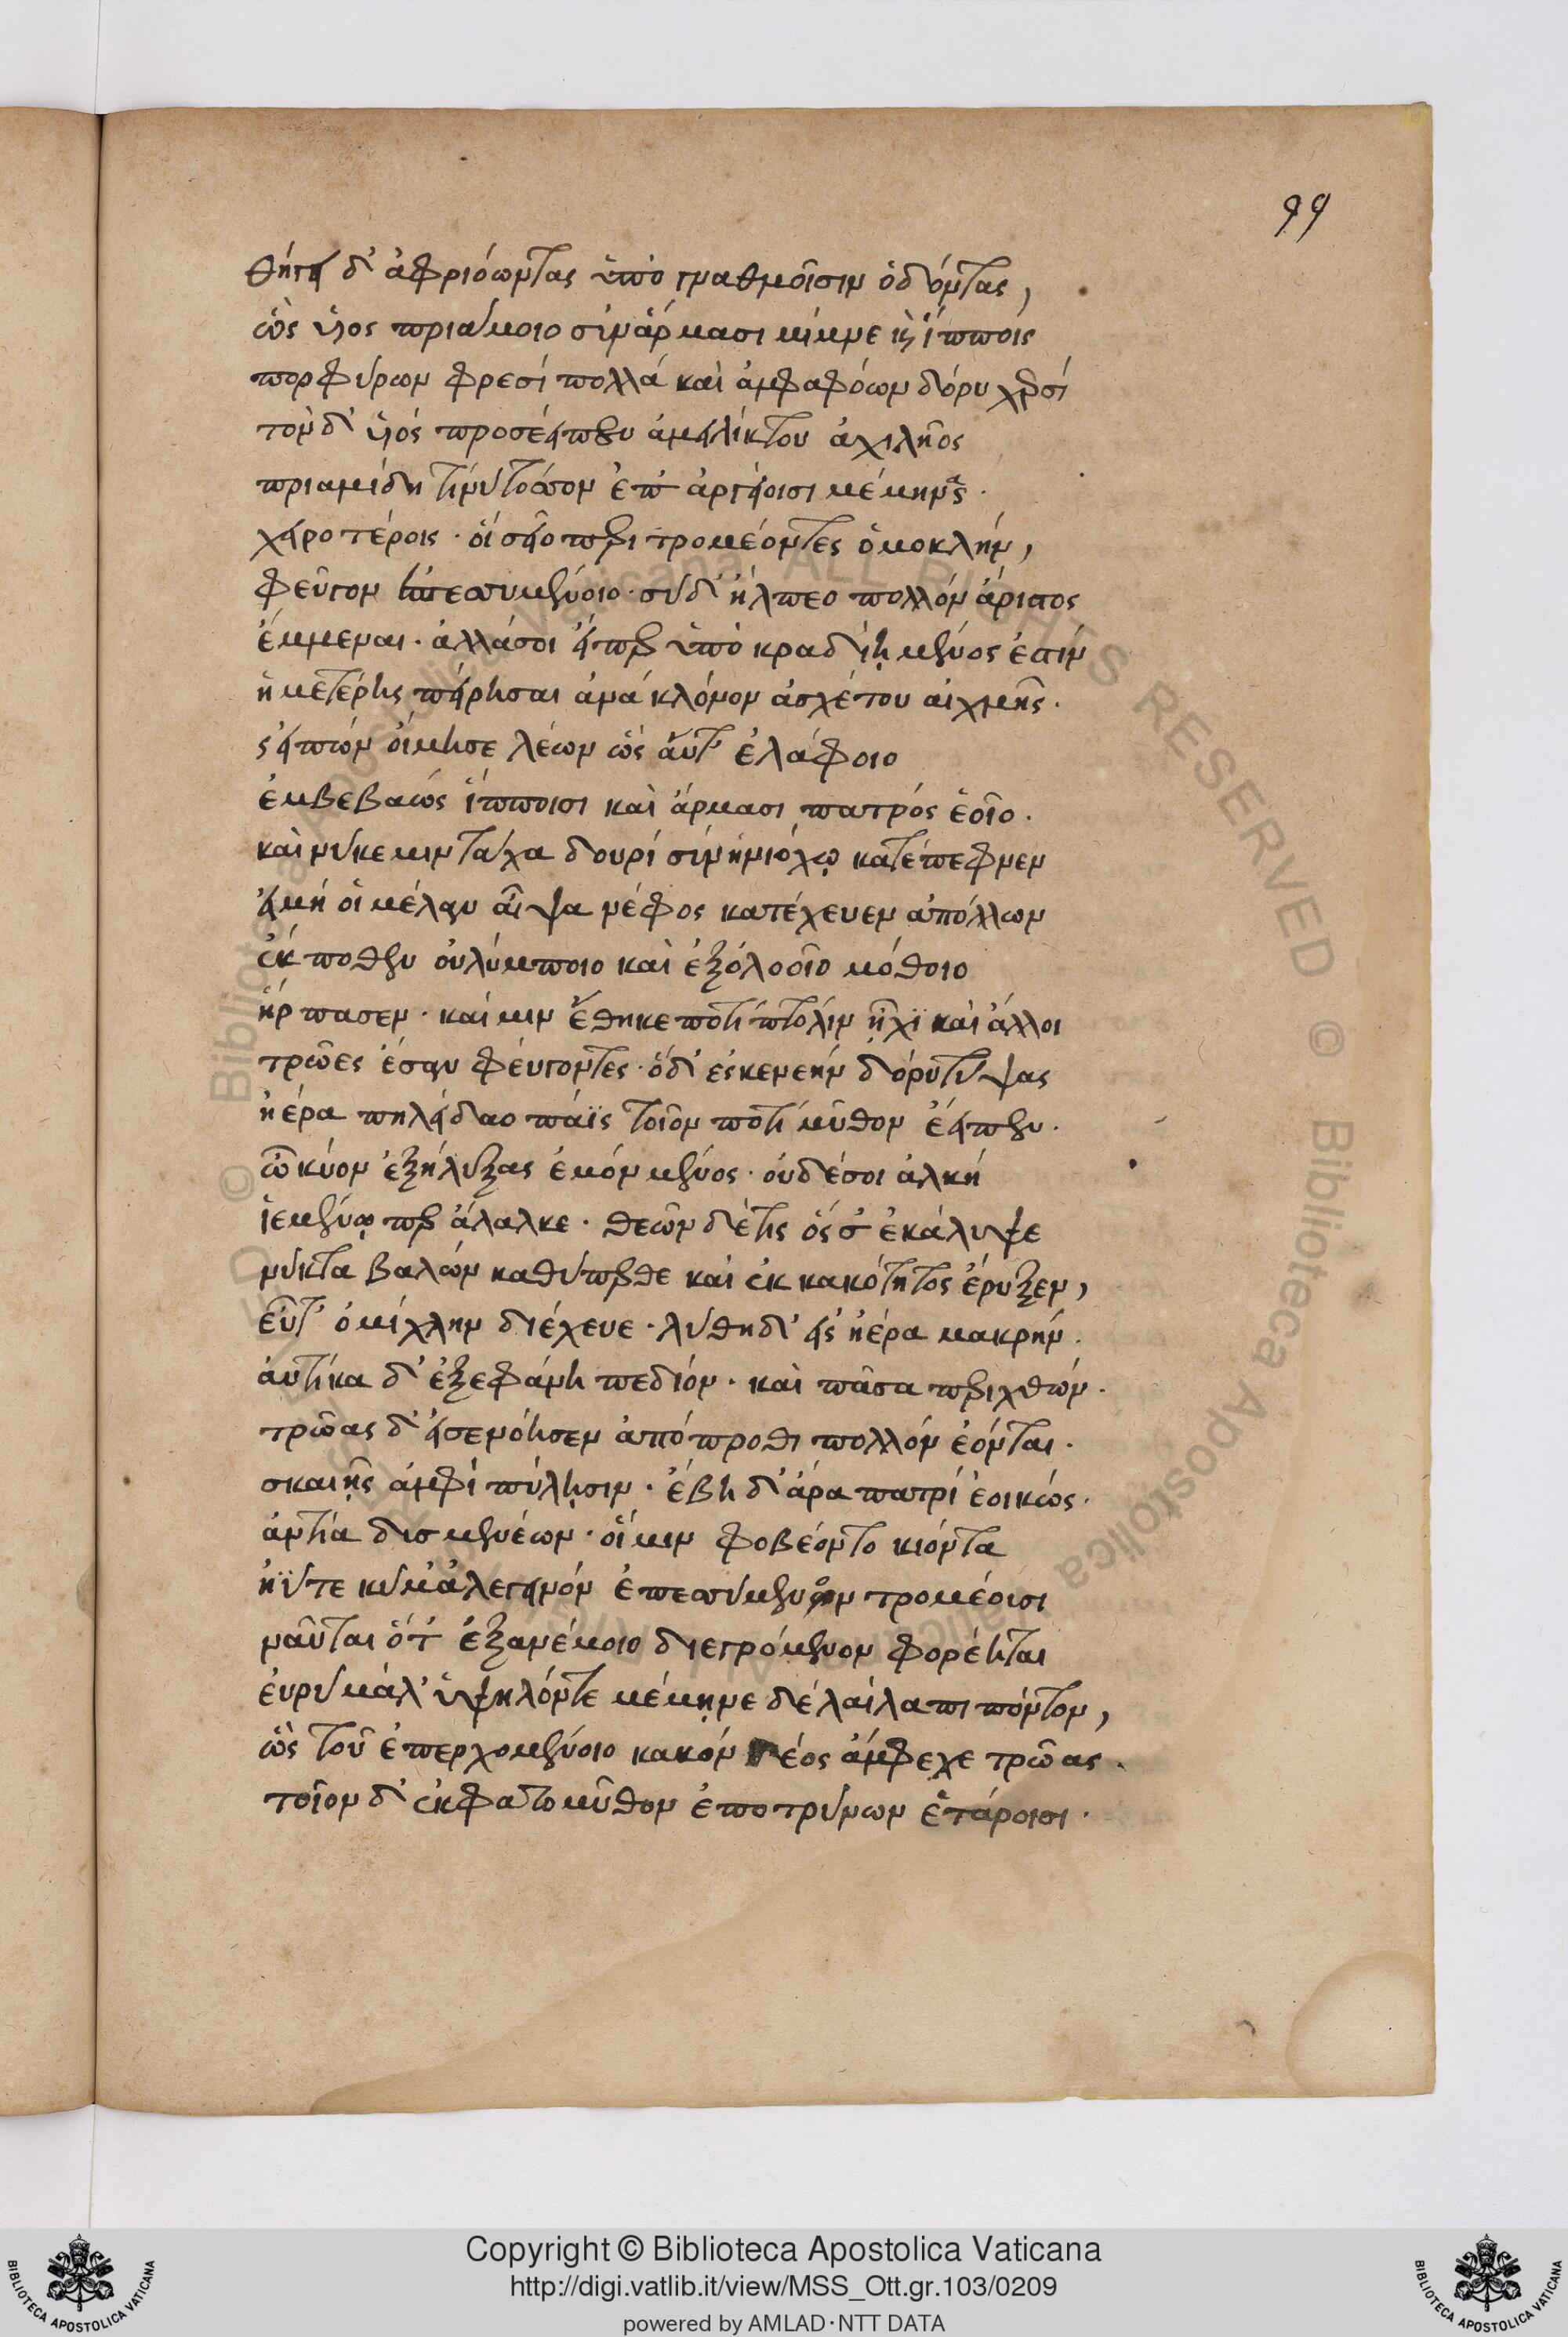 99
θήγει δ' ἀφριόωντας ὑπὸ γναθμοῖσιν ὀδόντας,
ὣς υἱὸς πριάμοιο σὺν ἅρμασι μίμνε κ ἵπποις
πορφύρων φρεσὶ πολλὰ καὶ ἀμφαφόων δόρυ χερσί
τὸν δ' υἱός προσέειπεν ἀμειλίκτου ἀχιλῆος
πριαμίδη τίνυ τόσσον ἐπ' ἀργείοισι μέμηνας·
χειροτέροις· οἵ σεῖο περι τρομέοντες ὁμοκλήν,
φεῦγον ἐπεσσυμένοιο· σὺ δ' ἤλπεο πολλόν ἄριστος
ἔμμεναι· ἀλλά σοι εἴπερ ὑπὸ κραδίῃ μένος ἐστίν
ἡμετέρης πείρησαι ἀνά κλόνον ἀσχέτου αἰχμῆς·
εἰπών οἴμησε λέων ὣς ἄντ' ἐλάφοιο
ἐμβεβαώς ἵπποισι καὶ ἅρμασι πατρός ἑοῖο.
καί νύ κε μιν τάχα δουρί σύν ἡνιόχῳ κατέπεφνεν
εἰ μή οἱ μέλαν αἶψα νέφος κατέχευεν ἀπόλλων
ἔκ ποθεν οὐλύμποιο καὶ ἐξ ὀλοοῖο μόθοιο
ἥρπασεν· καί μιν ἔθηκε ποτί πτόλιν ἧχι καὶ ἄλλοι
τρῶες ἔσαν φεύγοντες· ὁ δ' ἐς κενεήν δόρυ τύψας
ἠέρα πηλείδαο πάϊς τοῖον ποτί μῦθον ἔειπεν.
ὦ κύον ἐξήλυξας ἐμόν μένος· οὐδέ σοι ἀλκή
ἱεμένῳ περ ἄλαλκε· θεῶν δέ τις ὅς σ' ἐκάλυψε
νύκτα βαλών καθύπερθε καὶ ἐκ κακότητος ἔρυξεν,
εὖτ' ὀμίχλην διέχευε· λύθη δ' εἰς ἠέρα μακρήν.
αὐτίκα δ' ἐξεφάνη πεδίον· καὶ πᾶσα περι χθών.
τρῶας δ' εἰσενόησεν ἀπόπροθι πολλόν ἐόνται.
σκαιῇς ἀμφί πύλῃσιν· ἔβη δ' ἄρα πατρί ἐοικώς.
ἀντία δυσμενέων· οἵ μιν φοβέοντο κιόντα
ἠΰτε κῦμ' ἀλεγεινόν ἐπεσσύμενον τρομέουσι
ναῦται ὅτ' ἐξ ἀνέμοιο διεγρόμενον φορέηται
εὐρύ μάλ' ὑψηλόν τε μέμηνε δέ λαίλαπι πόντον,
ὣς τοῦ ἐπερχομένοιο κακόν δέος ἄμφεχε τρῶας.
τοῖον δ' ἐκφατο μῦθον ἐποτρύνων ἑτάροισι.
Copyright © Biblioteca Apostolica Vaticana
http://digi.vatlib.it/view/MSS_Ott.gr.103/0209
powered by AMLAD·NTT DATA